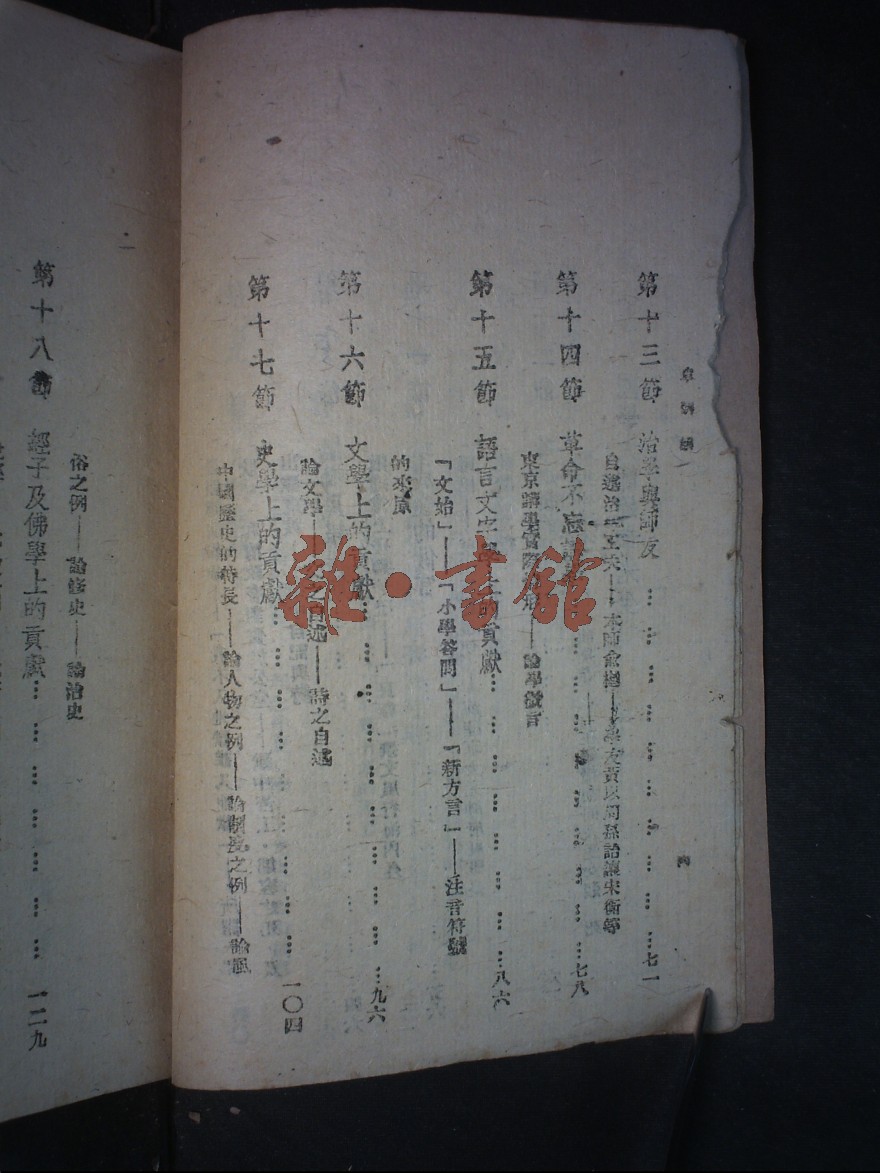 第十三節 治學與師友……七一
自述治學工夫——本師俞樾——學友黃以周孫詒讓宋衡等
第十四節 革命不忘講學……七八
東京講學實際情形——論學微言
第十五節 語言文字學上的貢獻……八六
「文始」——「小學答問」——「新方言」——注音符號
的來原
第十六節 文學上的貢獻……九六
論文學——文之自述——詩之自述
第十七節 史學上的貢獻……一〇四
中國歷史的特長——論人物之例——論制度之例——論
俗之例——論修史——論治史
第十八節 經子及佛學上的貢獻……一二九
雜·書館